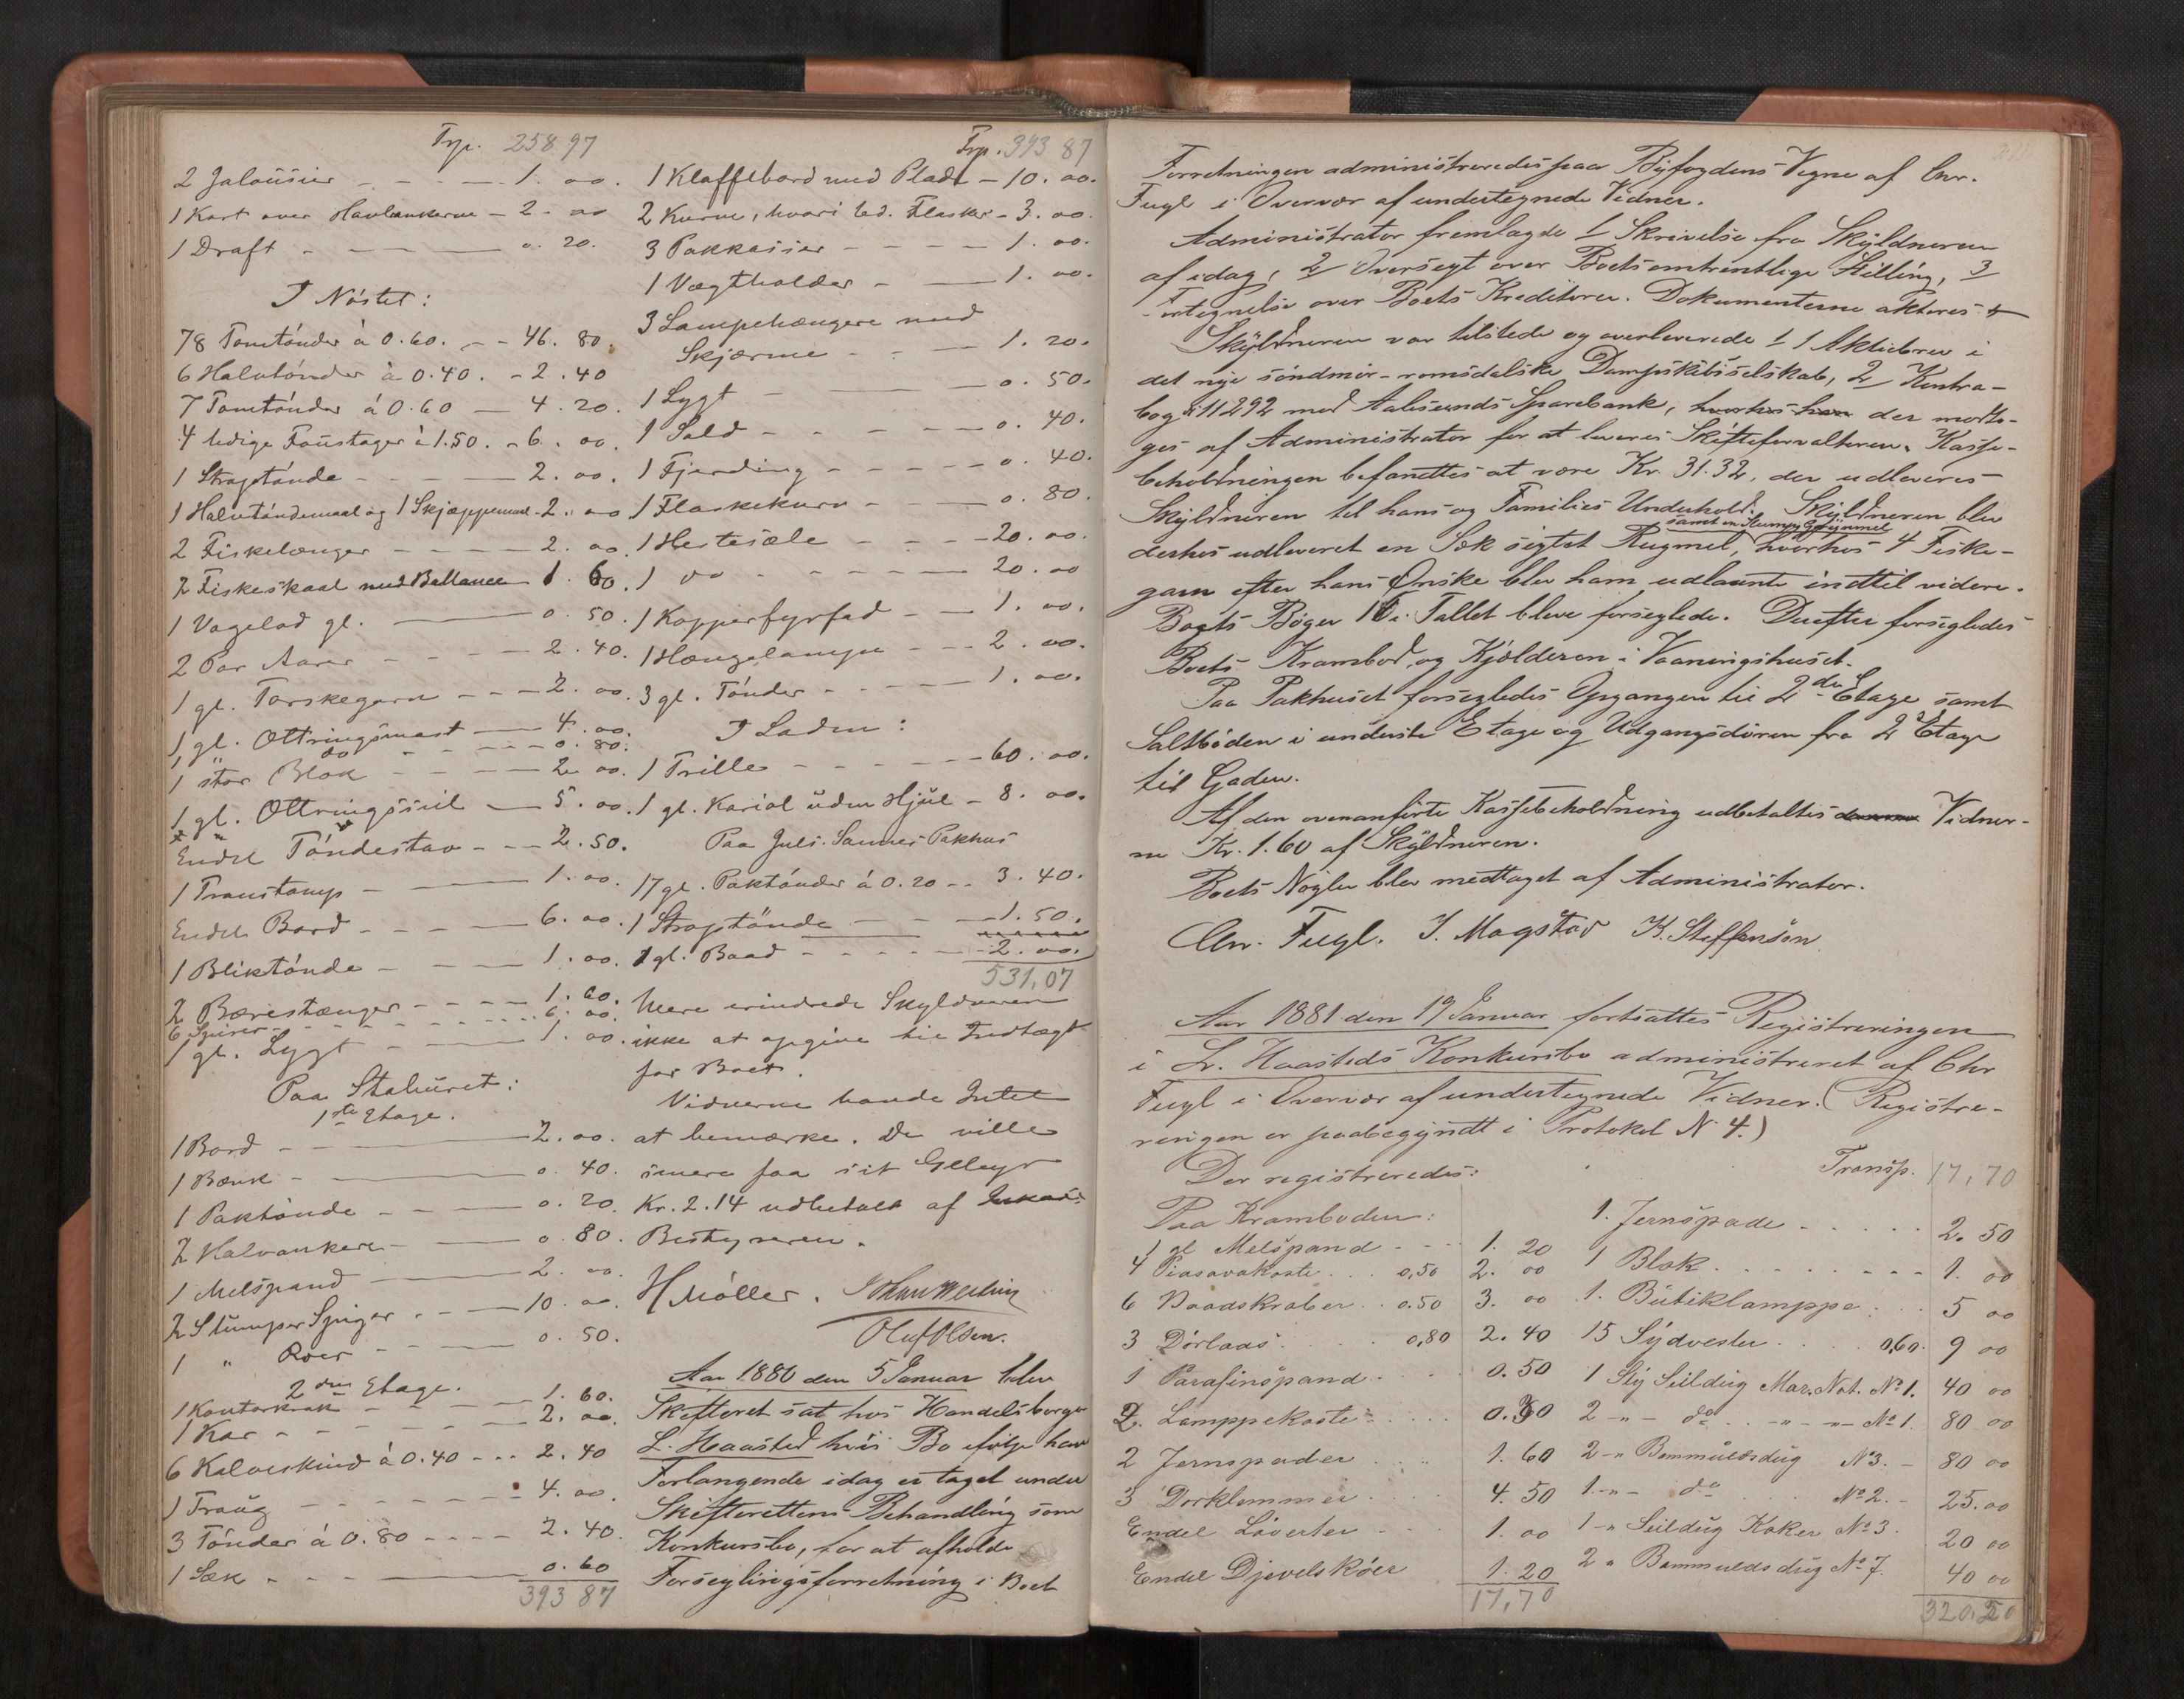 Trp. 258.97
2 Jalousier - - - - 1. 00.
1 Kart over Havbankerne - 2. 00
1 Draft - - - 0. 20.
I Nöstet:
78 Tomtönder à 0.60. - - 46. 80.
6 Halvtönder à 0.40. - 2. 40
7 Tomtönder á 0.60 - 4. 20.
4 ledige Foustager à 1.50. - 6. 00.
1 Straptönde - - - 2. 00.
1 Halvtöndemaal og 1 Skjæppemaal - 2. 00
2 Fiskelænger - - - - 2. 00.
2 Fiskeskaal med Ballancer 1. 60.
1 Vogelad gl. - 0. 50.
2 Par Aarer - - - - 2. 40.
1 gl. Torskegarn - - - 2. 00.
1 gl. Ottringsmast - 4. 00.
1 " do - - - - 0. 80.
1 stor Blok - - - 2. 00.
1 gl. Ottringsseil - 5. 00.
Endel Töndestav - - - 2. 50.
1 Transtamp - - 1. 00.
Endel Bord - - - - 6. 00.
1 Bliktönde - - - 1. 00.
2 Bærestænger - - - - 1. 60.
6 Spirer - - - - 6. 00.
1 gl. Lygt - - - 1. 00.
Paa Stabüret:
1ste Etage.
1 Bord - - - 2. 00.
1 Bænk - - 0. 40.
1 Paktönde - - - 0. 20.
2 Halvankere - 0. 80.
1 Melspand - 2. 00.
2 Stumper Spiger - - - 10. 00.
1 " Roer - - - 0. 50.
2den Etage.
1 Kontorkrak - - - 1. 60.
1 Kar - - - - 2. 00.
6 Kalveskind à 0.40 - - - 2. 40
1 Traug - - - - 4. 00.
3 Tönder á 0.80 - - - - 2. 40.
1 Sæk - - - 0. 60
393 87
Trp. 393 87
1 Klaffebord med Plade - 10. 00.
2 Kurve, hvori led. Flasker - 3. 00.
3 Pakkasser - - - - 1. 00.
1 Vægtholder - - 1. 00.
3 Lampehængere med
Skjærme - - - 1. 20.
1 Lygt - - 0. 50.
1 Sold - - - - 0. 40.
1 Fjerding - - - - - 0. 40.
1 Flaskekurv - - 0. 80.
1 Hestesæle - - - - 20. 00.
1 do - - - - - 20. 00
1 Kopperfyrfad - - 1. 00.
1 Hængelampe - - - 2. 00.
3 gl. Tönder - - - - 1. 00.
I Laden:
1 Trille - - - - - 60. 00.
1 gl. Kariol üden Hjül - 8. 00.
Paa Juls. Sannes Pakhus
17 gl. Paktönder á 0.20 - - 3. 40.
1 Straptönde - - - 1. 50.
1 gl. Baad - - - - - 2. 00.
531,07
Mere erindrede Skyldneren
ikke at opgive til Indtægt
for Boet.
Vidnerne havde Intet
at bemærke. De ville
senere faa sit Gebyr
Kr. 2.14 udbetalt af
Bestyreren.
H Möller. Johan Welin
Oluf Olsen.
Aar 1880 den 5 Januar blev
Skifteret sat hos Handelsborger
L. Haasted hvis Bo ifölge hans
Forlangende idag er taget under
Skifterettens Behandling som
Konkursbo, for at afholde
Forseglingsforretning i Boet
Forretningen administreredes paa Byfogdens Vegne af Chr.
Fugl i Overvær af undertegnede Vidner.
Administrator fremlagde 1/ Skrivelse fra Skyldneren
af idag, 2/ Oversigt over Boets omtrentlige Stilling, 3/
Fortegnelse over Boets Kreditorer. Dokumenterne akteres
Skyldneren var tilstede og overleverede 1/ 1 Aktiebrev i
det nye söndmör-romsdalske Dampskibsselskab, 2/ Kontra-
bog N 11292 med Aalesunds Sparebank, der modto-
ges af Administrator for at leveres Skifteforvalteren. Kasse-
beholdningen befandtes at være Kr. 31.32, der udleveres
Skyldneren til hans og Families Underhold. Skyldneren blev
samt en Slump Grynmel
derhos udleveret en Sæk sigtet Rugmel, hvorhos 4 Fiske-
garn efter hans Önske blev ham udlaante indtil videre.
Boets Böger 10 i Tallet bleve forseglede. Derefter forsegledes
Boets Krambod, og Kjælderen i Vaaningshuset.
Paa Pakhuset forsegledes Opgangen til 2den Etage samt
Saltboden i underste Etage og Udgangsdören fra 2 Etage
til Gaden.
Af den ovenanförte Kassebeholdning udbetaltes Vidner-
ne Kr. 1.60 af Skyldneren.
Boets Nögler blev modtaget af Administrator.
Chr. Fugl. J. Magstad K. Steffensen.
Aar 1881 den 19 Januar fortsattes Registreringen
i L. Haasteds Konkursbo administreret af Chr
Fugl i Overvær af undertegnede Vidner. (Registre-
ringen er paabegyndt i Protokol N 4.)
Der registreredes:
Paa Kramboden:
1 gl Melspand - - - 1. 20
4 Piasavakoste . . . 0,50 2. 00
6 Baadskraber . . 0.50 3. 00
3 Dörlaas . . . 0,80 2. 40
1 Parafinspand . . . 0. 50
2. Lamppekoste . . . . 0. 30
2 Jernspader . . . 1. 60
3 Dörklemmer . . . 4. 50
Endel Löverter . . . 1. 00
Endel Djevelsköer 1. 20
17,70
Transp. 17,70
1. Jernspade . . . . . 2. 50
1 Blok . . . . . . . . 1. 00
1. Bütiklamppe . . . 5 00
15 Sydvester . . . . 0,60. 9 00
1 Sty Seildug Mar. Nat. No 1. 40 00
2 -"- do . . -"- "- No 1. 80 00
2 -" Bommuldsdug N 3. - 80 00
1 -"- do . . . No 2. - 25. 00
1 -" Seildug Koker No 3. 20 00
2 " Bommuldsdug No 7. 40 00
320.20